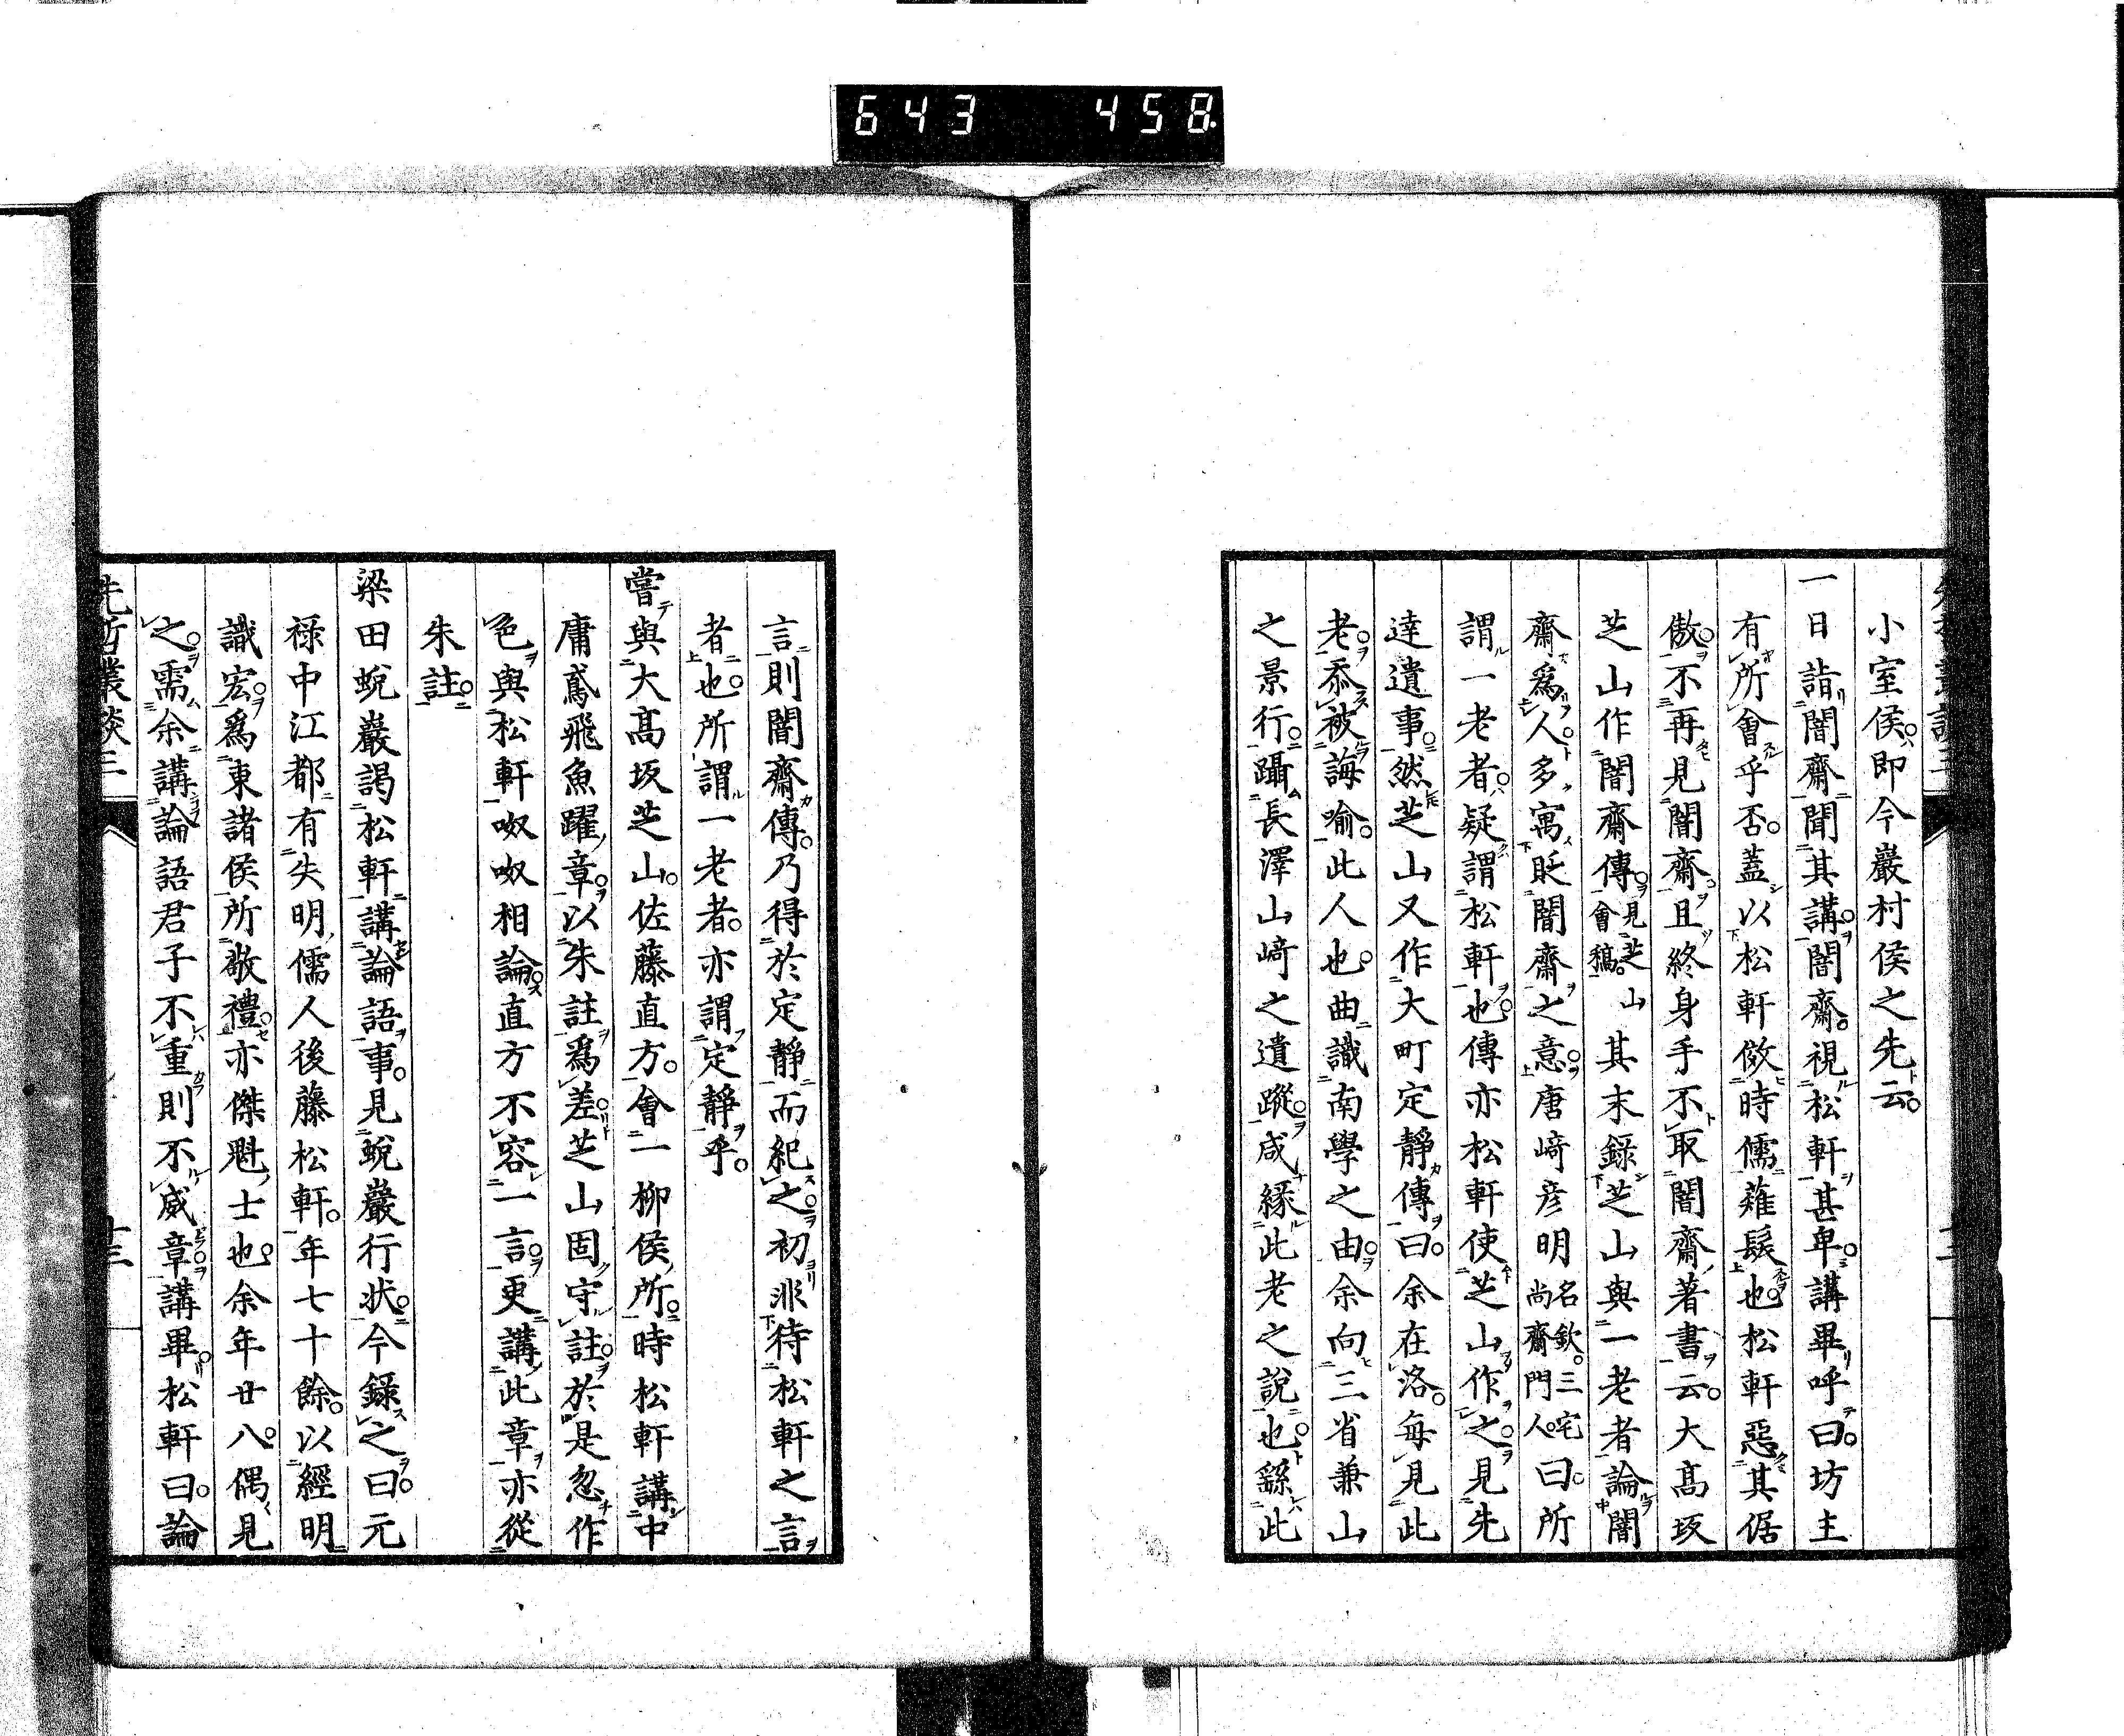 643 458
小室侯即今巖村侯之先云。
一日詣闇齋聞其講闇齋視松軒甚卑。講畢呼曰。坊主
有所會乎否。蓋以松軒倣時儒薙髮也。松軒惡其倨
傲。不再見闇齋。且終身手不取闇齋著書云。大高坂
芝山作闇齋傳。見芝山會稿。其末錄芝山與一老者論闇
齋爲人。多寓貶闇齋之意。唐﨑彦明名欽。三宅尚齋門人。曰。所
謂一老者。疑謂松軒也。傳亦松軒使芝山作之。見先
達遺事。然芝山又作大町定靜傳曰。余在洛。每見此
老。忝被誨喻。此人也。曲識南學之由。余向三省兼山
之景行。躡長澤山﨑之遺蹤。咸緣此老之說也。繇此
言則闇齋傳。乃得於定靜而紀之初非待松軒之言
者也。所謂一老者。亦謂定靜乎。
嘗與大高坂芝山。佐藤直方。會一柳侯所。時松軒講中
庸鳶飛魚躍章。以朱註爲差。芝山固守註。於是忽作
色與松軒呶呶相論。直方不容一言。更講此章亦從
朱註。
梁田蛻巖謁松軒講論語事。見蛻巖行狀。今錄之曰。元
祿中江都有失明儒人後藤松軒。年七十餘。以經明
識宏。爲東諸侯所敬禮。亦傑魁士也。余年廿八。偶見
之。需余講論語君子不重則不威章。講畢。松軒曰。論
先哲叢談三
十三